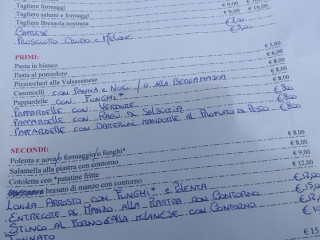 Tagliere formaggi € 9,00
Tagliere salumi e formaggi € 9,00 € 16,00
Tagliere Bresaola nostrana
CAPRESE
PROSCIUTTO CRUDO e MELONE
PRIMI:
Pasta in bianco € 5,00
Pasta al pomodoro € 6,00
Pizzoccheri alla Valsassinese
CASONCELLI CON PANNA e NOCI / O ALLA BERGAMASCA
PAPPARDELLE CON FUNGHI*
PAPPARDELLE CON VERDURE
PAPPARDELLE CON RAGÙ DI SALSICCIA
PAPPARDELLE CON DATTERINI MANDORLE AL PROFUMO DI PESTO
SECONDI:
Polenta e formaggio/o funghi* € 8,00
Salamella alla piastra con contorno € 8,00
Cotoletta con *patatine fritte € 9,00
brasato di manzo con contorno € 12,00
LONZA ARROSTO CON FUNGHI* e POLENTA
ENTRECOTE DI MANZO ALLA PIASTRA CON CONTORNO
STINCO AL FORNO ALLA MILANESE CON CONTORNO
TONNATO